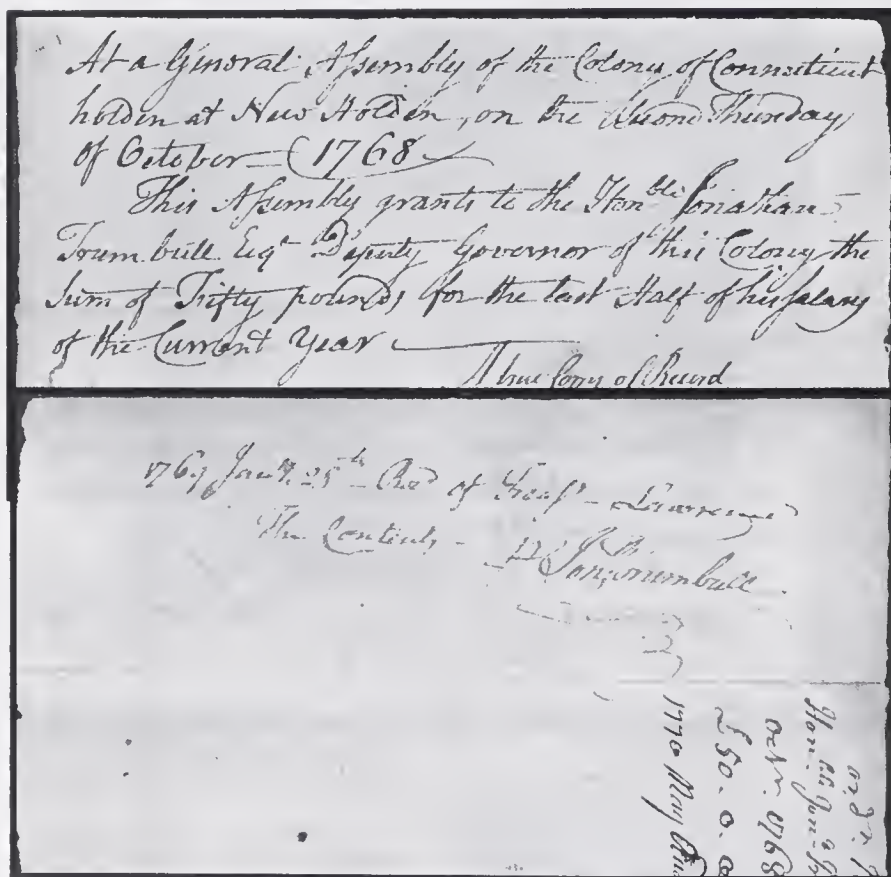 At a General Assembly of the Colony of Connecticut
holden at New Holden, on the Second Thursday
of October 1768
This Assembly grants to the Honble Jonathan
Trumbull Esqr Deputy Governor of this Colony the
Sum of Fifty pounds for the last Half of his Salary
of the Current Year
A true Copy of Record
1769 Jany. 25th Recd of Treasr Lawrence
The Contents
Jonth Trumbull
Honble Jona Tr
Octr. 1768
£50.0.0
1770 May